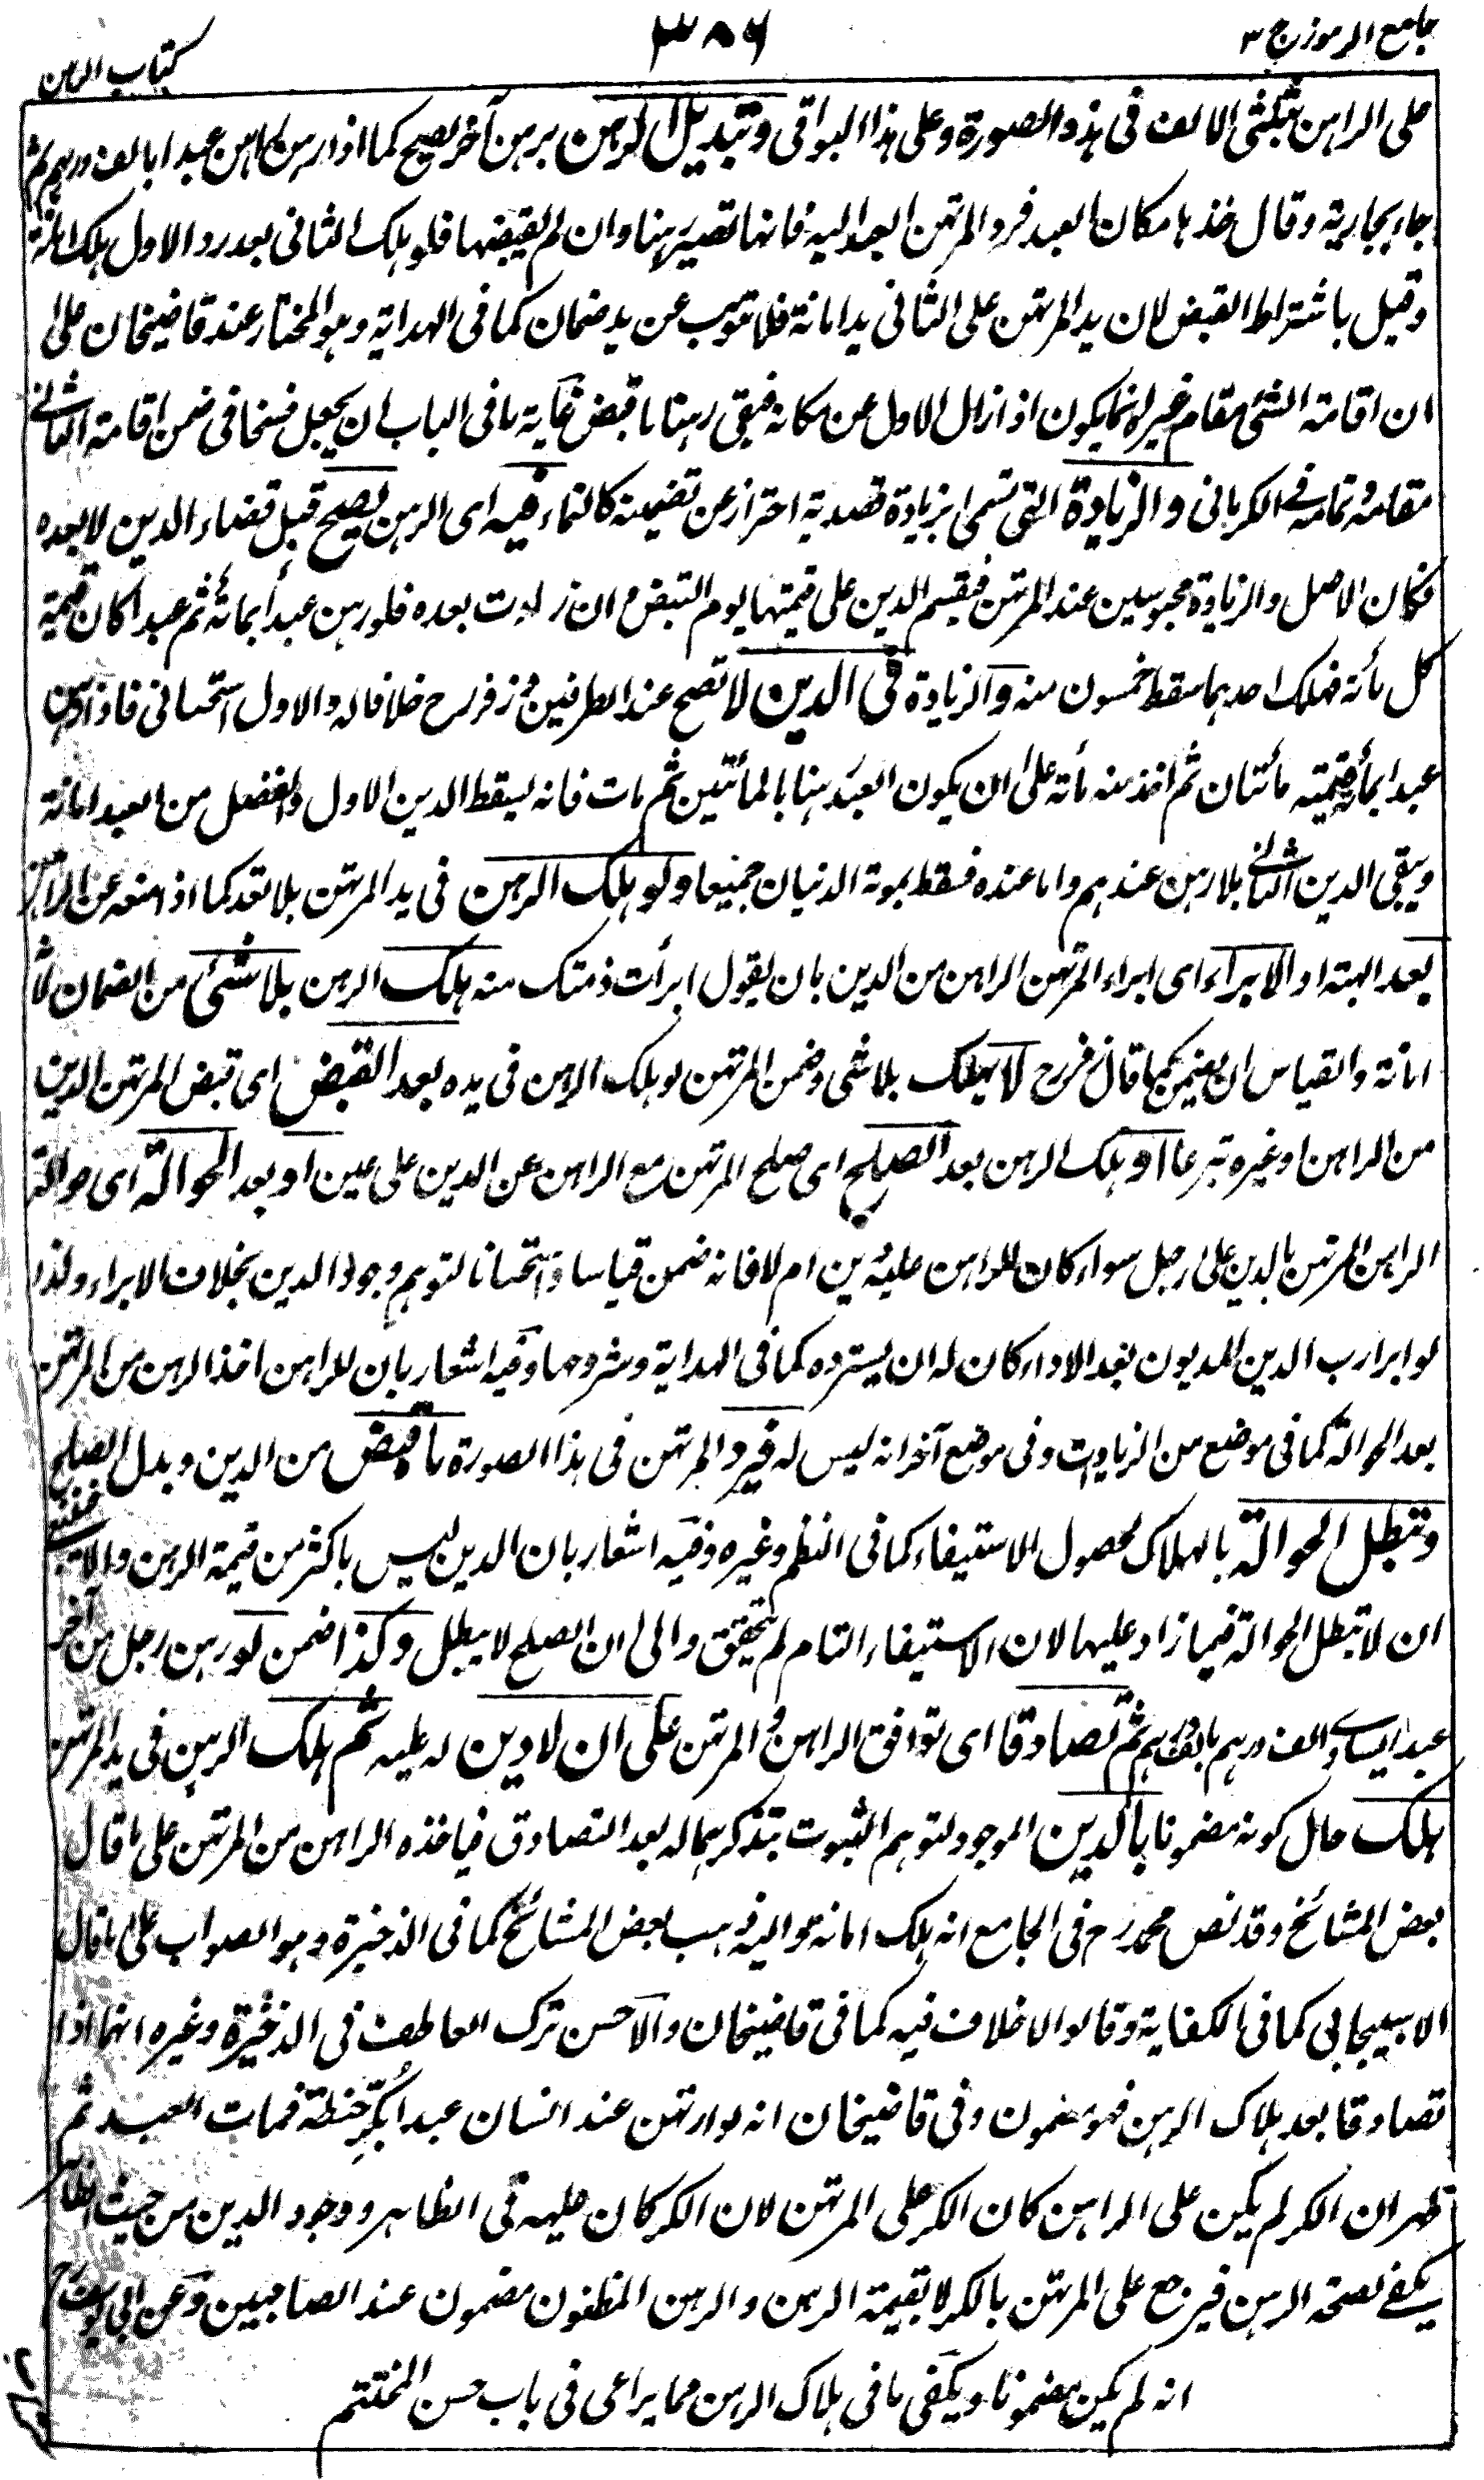 جامع الرموز ج ٣
٣٨٦
كتاب الرهن
على الراهن بثلثى الالف فى هذه الصورة وعلى هذا البواقى وتبديل الرهن برهن آخر يصح كما اذا رهن عبدا بالف درهم ثم
جاء بجارية وقال خذها مكان العبد فرد المرتهن العبد اليه فانها تصير رهنا وان لم يقبضها فلو هلك الثانى بعد رد الاول هلك امانة
وقيل باشتراط القبض لان يد المرتهن على الثانى يد امانة فلا تنوب عن يد ضمان كما فى الهداية وهو المختار عند قاضيخان على
ان اقامة الشئ مقام غيره انما يكون اذا زال الاول عن مكانه فبقى رهنا ما قبض غاية ما فى الباب ان يجعل فسخا فى ضمن اقامة الثانى
مقامه وتمامه فى الكرمانى والزيادة التى تسمى بزيادة قصدية احتراز عن تضمنية كالنماء فيه اى الرهن يصح قبل قضاء الدين لا بعده
فكان الاصل والزيادة محبوسين عند المرتهن فيقسم الدين على قيمتها يوم القبض وان زادت بعده فلو رهن عبدا بمائة ثم عبدا كان قيمة
كل مائة فهلك احدهما سقط خمسون منه والزيادة فى الدين لا تصح عند الطرفين وزفر رح خلافا له والاول استحسانى فاذا رهن
عبدا بمائة قيمته مائتان ثم اخذ منه مائة على ان يكون العبد رهنا بالمائتين ثم مات فانه يسقط الدين الاول والفضل من العبد امانة
ويبقى الدين الثانى بلا رهن عندهم واما عنده فسقط بموته الدينان جميعا ولو هلك الرهن فى يد المرتهن بلا تعد كما اذا منعه عن الراهن
بعد الهبة او الابراء اى ابراء المرتهن الراهن من الدين بان يقول ابرأت ذمتك منه هلك الرهن بلا شئ من الضمان لانه
امانة والقياس ان يضمن كما قال زفر رح لا يهلك بلا شى وضمن المرتهن لو هلك الرهن فى يده بعد القبض اى قبض المرتهن الدين
من الراهن او غيره تبرعا او هلك الرهن بعد الصلح اى صلح المرتهن مع الراهن عن الدين على عين او بعد الحوالة اى حوالة
الراهن المرتهن بالدين على رجل سواء كان للراهن عليه دين ام لا فانه ضمن قياسا واستحسانا لتوهم وجود الدين بخلاف الابراء ولذا
لو ابرأ رب الدين المديون بعد الاداء كان له ان يسترده كما فى الهداية وشروحها وفيه اشعار بان للراهن اخذ الرهن من المرتهن
بعد الحوالة كما فى موضع من الزيادات وفى موضع آخر انه ليس له فيرد المرتهن فى هذا الصورة ما قبض من الدين وبدل الصلح
وتبطل الحوالة بالهلاك لحصول الاستيفاء كما فى النظم وغيره وفيه اشعار بان الدين ليس باكثر من قيمة الرهن والا فينبغى
ان لا تبطل الحوالة فيما زاد عليها لان الاستيفاء التام لم يتحقق والى ان الصلح لا يبطل وكذا ضمن لو رهن رجل من آخر
عبدا يساوى الف درهم بالف درهم ثم تصادقا اى توافق الراهن والمرتهن على ان لا دين له عليه ثم هلك الرهن فى يد المرتهن
هلك حال كونه مضمونا بالدين الموجود لتوهم الثبوت بتذكرهما له بعد التصادق فياخذه الراهن من المرتهن على ما قال
بعض المشائخ وقد نص محمد رح فى الجامع انه هلك امانة واليه ذهب بعض المشائخ كما فى الذخيرة وهو الصواب على ما قال
الاسبيجابى كما فى الكفاية وقالوا لا خلاف فيه كما فى قاضيخان والاحسن ترك العاطف فى الذخيرة وغيره انهما اذا
تصادقا بعد هلاك الرهن فهو مضمون وفى قاضيخان انه لو ارتهن عند انسان عبدا بكر حنطة فمات العبد ثم
ظهر ان الكر لم يكن على الراهن كان الكر على المرتهن لان الكر كان عليه فى الظاهر ووجود الدين من حيث الظاهر
يكفى لصحة الرهن فيرجع على المرتهن بالكر لا بقيمة الرهن والرهن المظنون مضمون عند الصاحبين وعن ابى يوسف رح
انه لم يكن مضمونا ويكفى ما فى هلاك الرهن مما يراعى فى باب حسن المختتم